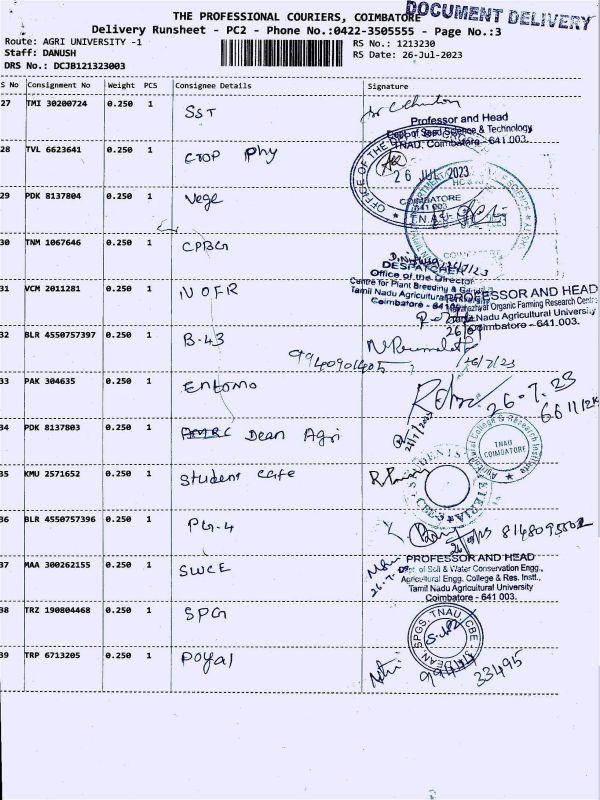 THE PROFESSIONAL COURIERS, COIMBATORE
DOCUMENT DELIVERY
Delivery Runsheet - PC2 - Phone No.:0422-3505555 - Page No.:3
Route: AGRI UNIVERSITY -1
RS No.: 1213230
Staff: DANUSH
RS Date: 26-Jul-2023
DRS No.: DCJB121323003
S No Consignment No Weight PCS Consignee Details Signature
27 TMI 30200724 0.250 1 SST
Professor and Head
Dept of Seed Science & Technology
TNAU, Coimbatore - 641 003.
28 TVL 6623641 0.250 1 Crop Phy
OFFICE OF THE
26 JUL 2023
COIMBATORE
641 003
29 PDK 8137804 0.250 1 Vege
T.N.A.U.
30 TNM 1067646 0.250 1 CPBG
DESPATCHER
Office of the Director
Centre for Plant Breeding &
Tamil Nadu Agricultural
Coimbatore - 641
31 VCM 2011281 0.250 1 NOFR
PROFESSOR AND HEAD
Organic Farming Research Centre
Tamil Nadu Agricultural University
Coimbatore - 641 003.
32 BLR 4550757397 0.250 1 B-43
9940901405
26/7/23
33 PAK 304635 0.250 1 Entomo
26-7-23
34 PDK 8137803 0.250 1 Dean Agri
Agricultural College & Research Institute
TNAU
COIMBATORE
35 KMU 2571652 0.250 1 Student cafe
36 BLR 4550757396 0.250 1 PG-4
37 MAA 300262155 0.250 1 SWCE
PROFESSOR AND HEAD
Dept. of Soil & Water Conservation Engg.,
Agricultural Engg. College & Res. Instt.,
Tamil Nadu Agricultural University
Coimbatore - 641 003.
38 TRZ 190804468 0.250 1 SPG
DEAN, SPGS, TNAU, CBE
39 TRP 6713205 0.250 1 Poyal
33495